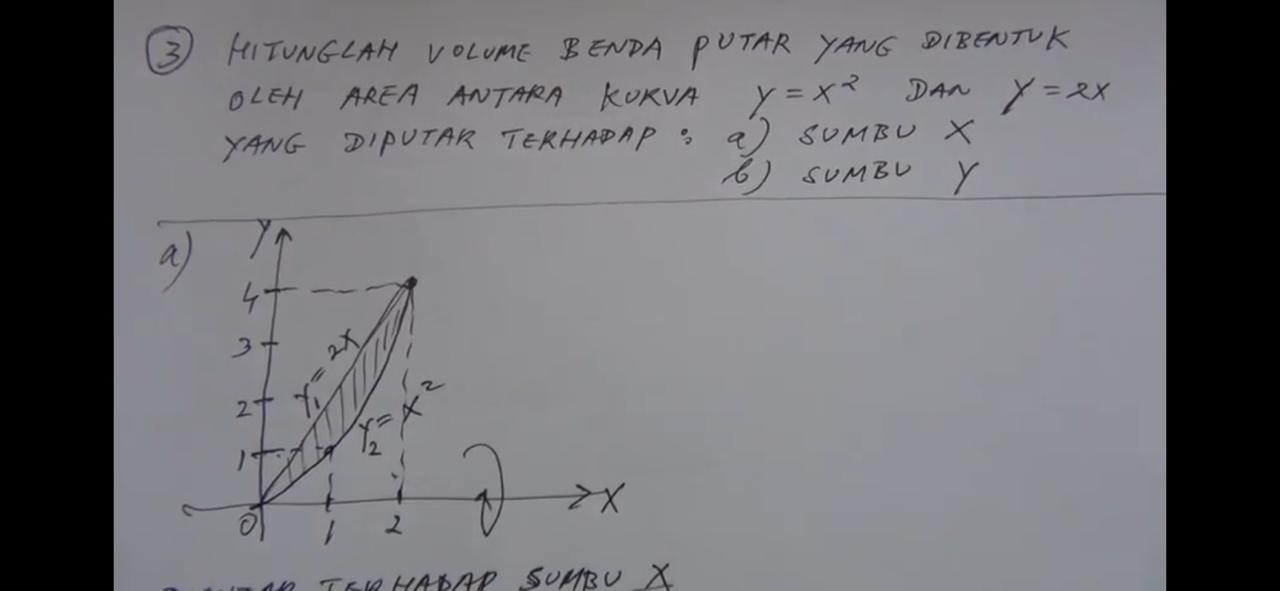 3 HITUNGLAH VOLUME BENDA PUTAR YANG DIBENTUK
OLEH AREA ANTARA KURVA y = x² DAN y = 2x
YANG DIPUTAR TERHADAP : a) SUMBU X
b) SUMBU Y
a) Y
4
3
2
1
0
1
2
X
Y₁ = 2X
Y₂ = X²
TERHADAP SUMBU X